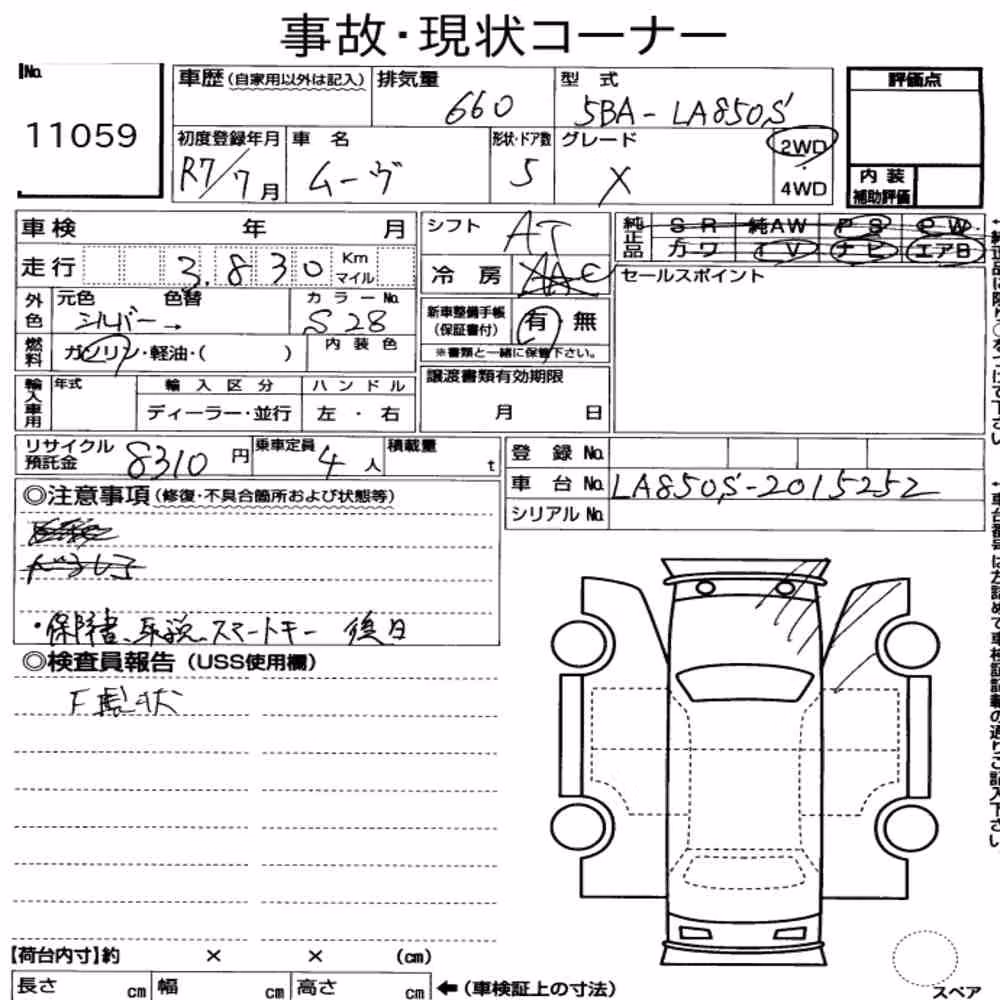 事故・現状コーナー
No.
11059
車歴(自家用以外は記入)
排気量
660
型式
5BA-LA850S
評価点
初度登録年月
R7/7月
車名
ムーヴ
形状・ドア数
5
グレード
X
2WD
4WD
内装
補助評価
車検 年 月
シフト
AT
純正品
SR 純AW PS PW
カワ TV ナビ エアB
走行
3,830 Km マイル
冷房
AAC
セールスポイント
外色
元色 色替
シルバー →
カラーNo.
S28
新車整備手帳
(保証書付)
有・無
※書類と一緒に保管下さい。
燃料
ガソリン・軽油・( )
内装色
輸入車用
年式
輸入区分
ハンドル
ディーラー・並行
左・右
譲渡書類有効期限
月 日
リサイクル
預託金
8310円
乗車定員
4人
積載量
t
登録No.
車台No.
LA850S-2015252
シリアルNo.
◎注意事項(修復・不具合箇所および状態等)
・保障書、取説、スマートキー 後日
◎検査員報告(USS使用欄)
【荷台内寸】約 × × (cm)
長さ cm 幅 cm 高さ cm
←(車検証上の寸法)
スペア